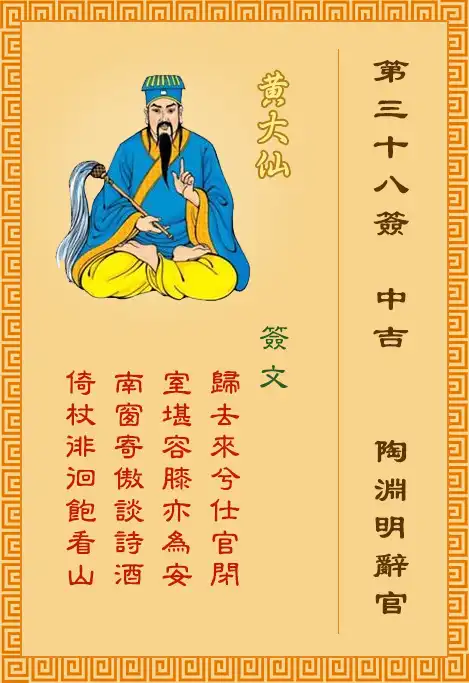 第三十八簽 中吉 陶淵明辭官
黃大仙
簽文
歸去來兮仕官閉
室堪容膝亦為安
南窗寄傲談詩酒
倚杖徘徊飽看山